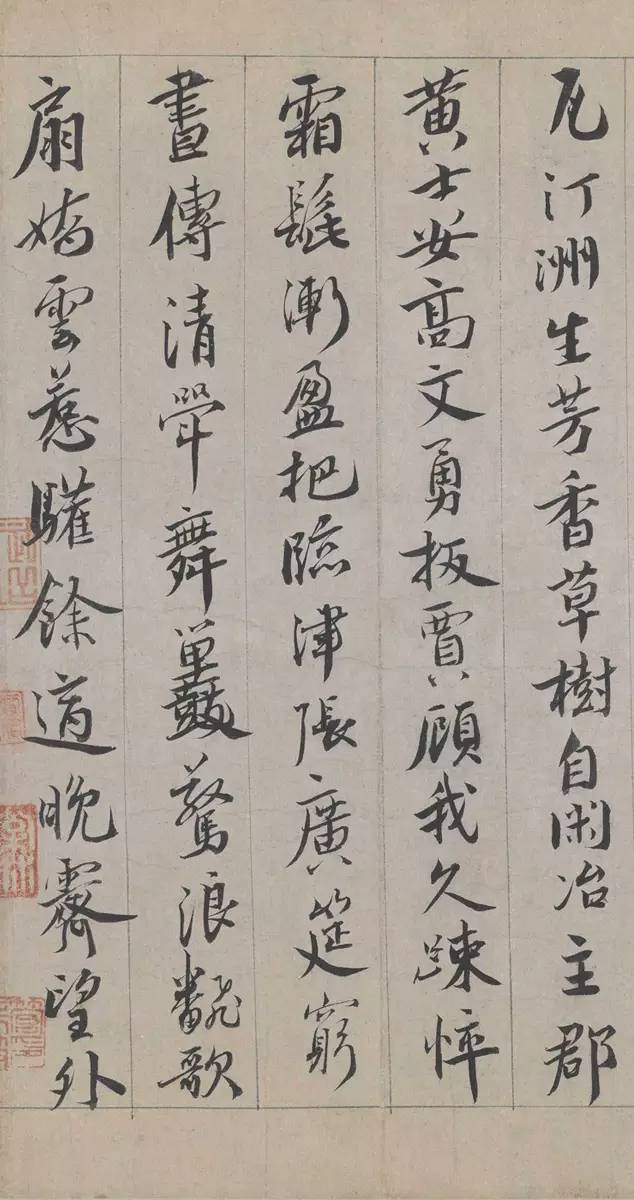 瓦汀洲生芳香草樹自閑冶主郡
黃士安高文勇扳賈顧我久踈悴
霜髭漸盈把臨津張廣筵窮
晝傳清斝舞鼉驚浪飜歌
扇嬌雲惹驩餘適晚霽望外